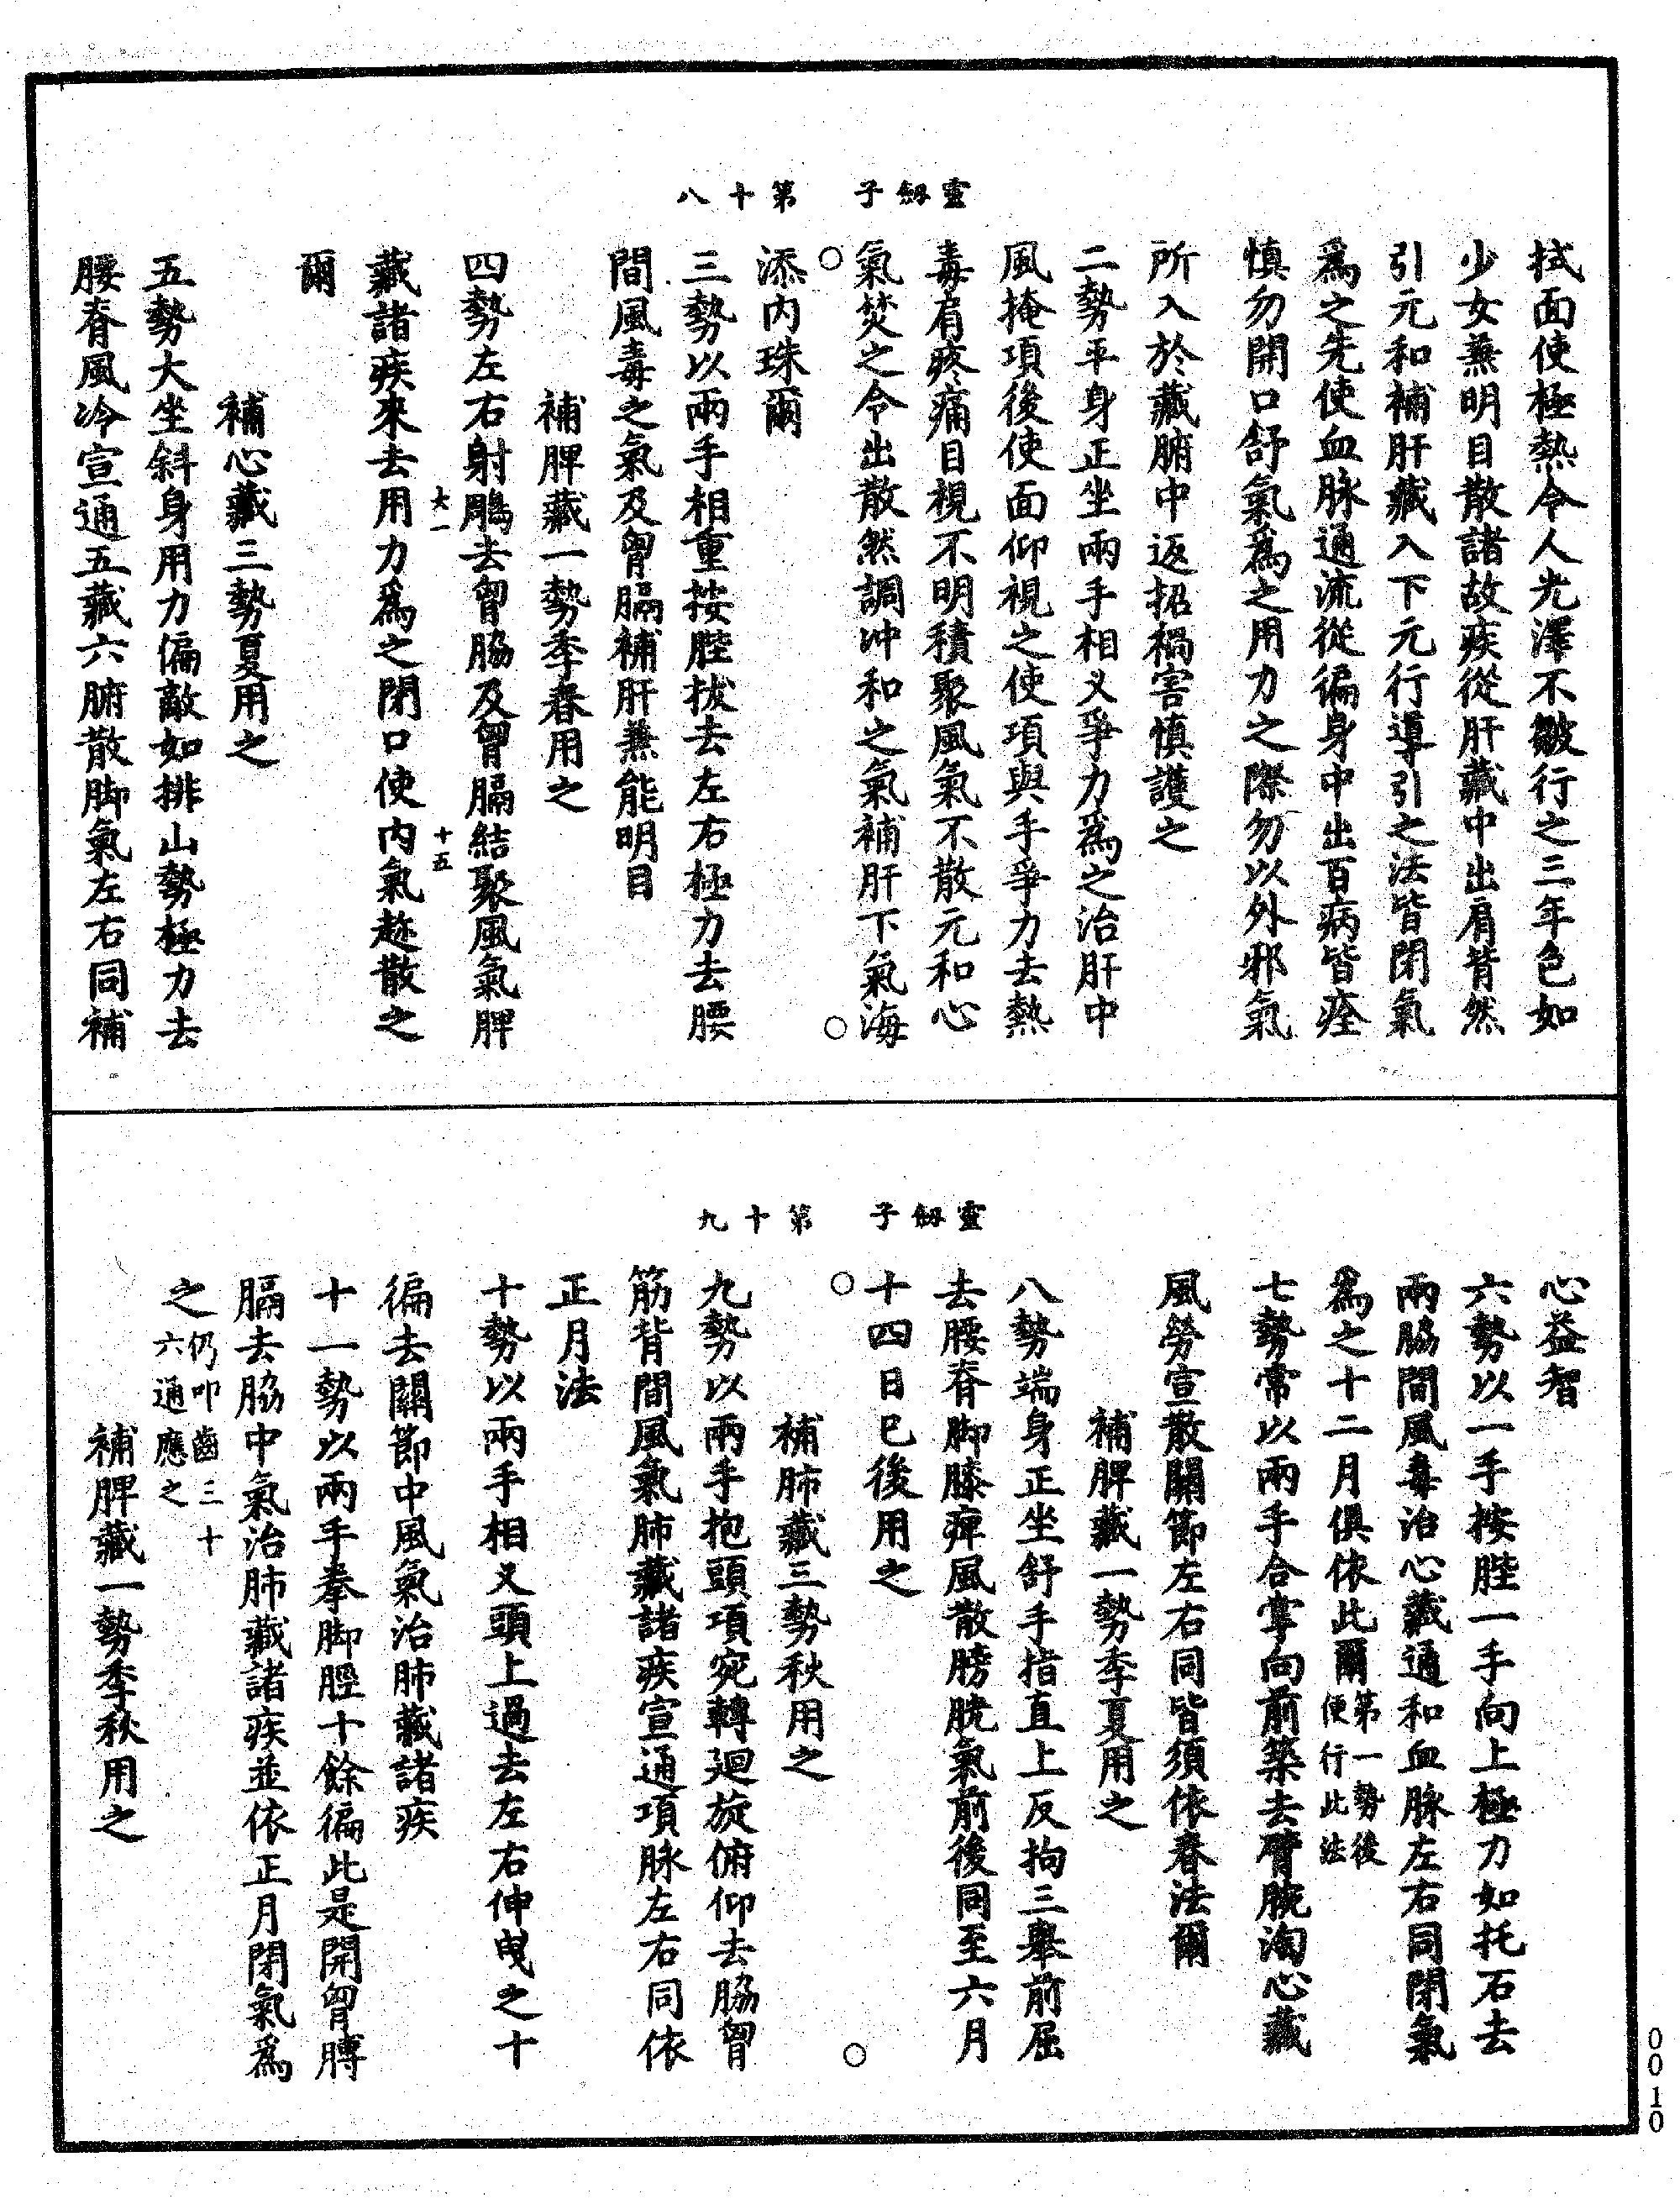 靈劔子　第十八
拭面使極熱令人光澤不皺行之三年色如
少女兼明目散諸故疾從肝藏中出肩背然
引元和補肝藏入下元行導引之法皆閉氣
爲之先使血脉通流從徧身中出百病皆痊
慎勿開口舒氣爲之用力之際勿以外邪氣
所入於藏腑中返招禍害慎護之
二勢平身正坐兩手相叉爭力爲之治肝中
風掩項後使面仰視之使項與手爭力去熱
毒肩疼痛目視不明積聚風氣不散元和心
氣焚之令出散然調冲和之氣補肝下氣海
添内珠爾
三勢以兩手相重按䏶拔去左右極力去腰
間風毒之氣及胷膈補肝兼能明目
補脾藏一勢季春用之
四勢左右射鵰去胷脇及胷膈結聚風氣脾
大一　十五
藏諸疾來去用力爲之閉口使内氣趂散之
爾
補心藏三勢夏用之
五勢大坐斜身用力偏敵如排山勢極力去
腰脊風冷宣通五藏六腑散脚氣左右同補
靈劔子　第十九
心益智
六勢以一手按䏶一手向上極力如托石去
兩脇間風毒治心藏通和血脉左右同閉氣
爲之十二月俱依此爾第一勢後便行此法
七勢常以兩手合掌向前築去臂腕淘心藏
風勞宣散關節左右同皆須依春法爾
補脾藏一勢季夏用之
八勢端身正坐舒手指直上反拘三舉前屈
去腰脊脚膝痺風散膀胱氣前後同至六月
十四日已後用之
補肺藏三勢秋用之
九勢以兩手抱頭項宛轉廻旋俯仰去脇胷
筋背間風氣肺藏諸疾宣通項脉左右同依
正月法
十勢以兩手相叉頭上過去左右伸曳之十
徧去關節中風氣治肺藏諸疾
十一勢以兩手拳脚脛十餘徧此是開胷膊
膈去脇中氣治肺藏諸疾並依正月閉氣爲
之仍叩齒三十六通應之
補脾藏一勢季秋用之
0010